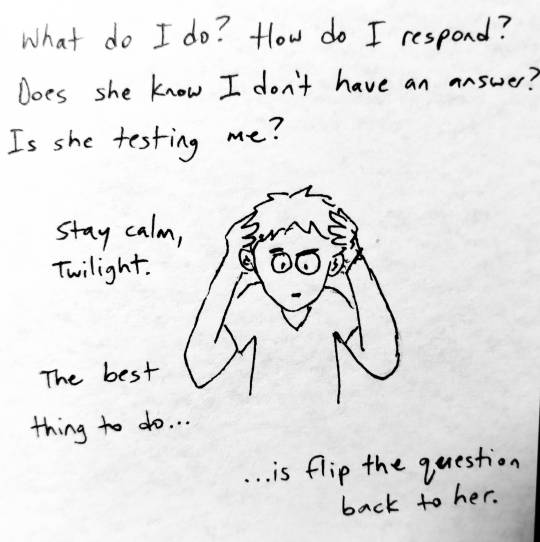 What do I do? How do I respond?
Does she know I don't have an answer?
Is she testing me?
Stay calm,
Twilight.
The best
thing to do...
...is flip the question
back to her.